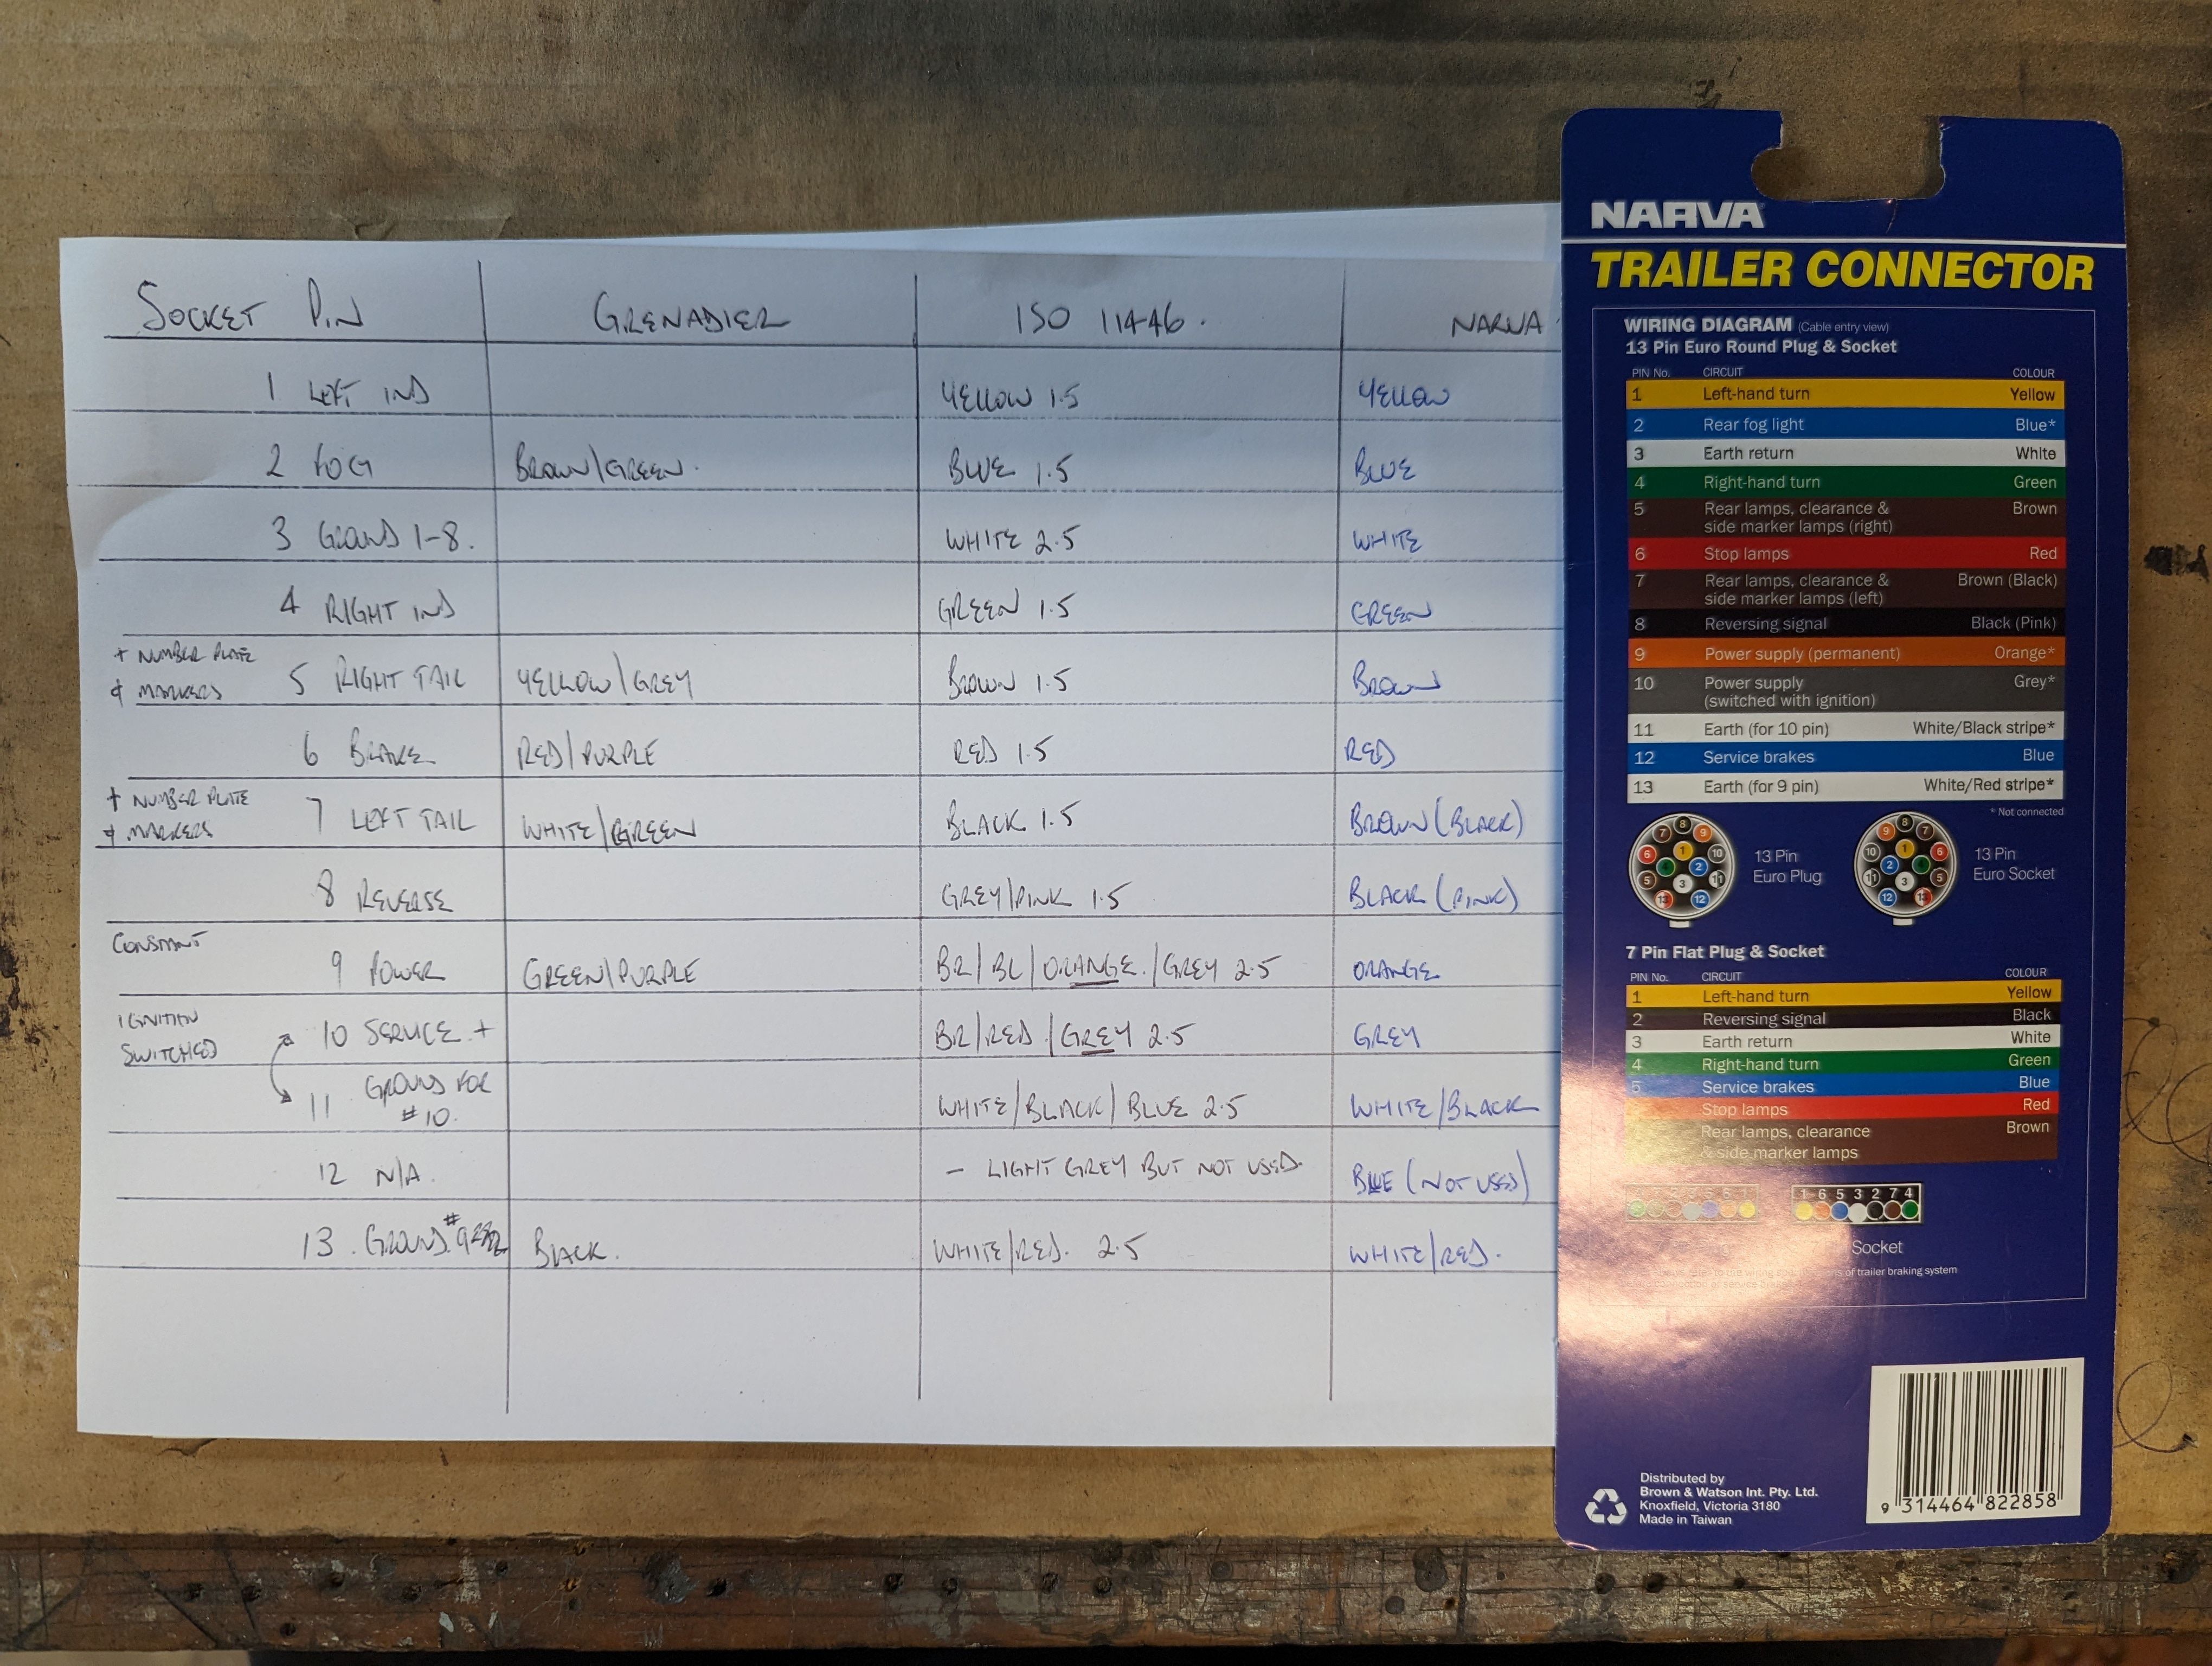 SOCKET PIN GRENADIER ISO 11446. NARVA
1 LEFT IND YELLOW 1.5 YELLOW
2 FOG BROWN/GREEN. BLUE 1.5 BLUE
3 GROUND 1-8. WHITE 2.5 WHITE
4 RIGHT IND GREEN 1.5 GREEN
+ NUMBER PLATE
& MARKERS 5 RIGHT TAIL YELLOW/GREY BROWN 1.5 BROWN
6 BRAKE RED/PURPLE RED 1.5 RED
+ NUMBER PLATE
& MARKERS 7 LEFT TAIL WHITE/GREEN BLACK 1.5 BROWN (BLACK)
8 REVERSE GREY/PINK 1.5 BLACK (PINK)
CONSTANT
9 POWER GREEN/PURPLE BR/BL/ORANGE/GREY 2.5 ORANGE
IGNITION
SWITCHED 10 SERVICE + BR/RED/GREY 2.5 GREY
11 GROUND FOR
#10. WHITE/BLACK/BLUE 2.5 WHITE/BLACK
12 N/A. - LIGHT GREY BUT NOT USED. BLUE (NOT USED)
13. GROUND #9 BLACK. WHITE/RED. 2.5 WHITE/RED.
NARVA
TRAILER CONNECTOR
WIRING DIAGRAM (Cable entry view)
13 Pin Euro Round Plug & Socket
PIN No. CIRCUIT COLOUR
1 Left-hand turn Yellow
2 Rear fog light Blue*
3 Earth return White
4 Right-hand turn Green
5 Rear lamps, clearance & Brown
side marker lamps (right)
6 Stop lamps Red
7 Rear lamps, clearance & Brown (Black)
side marker lamps (left)
8 Reversing signal Black (Pink)
9 Power supply (permanent) Orange*
10 Power supply Grey*
(switched with ignition)
11 Earth (for 10 pin) White/Black stripe*
12 Service brakes Blue
13 Earth (for 9 pin) White/Red stripe*
* Not connected
13 Pin
Euro Plug
13 Pin
Euro Socket
7 Pin Flat Plug & Socket
PIN No. CIRCUIT COLOUR
1 Left-hand turn Yellow
2 Reversing signal Black
3 Earth return White
4 Right-hand turn Green
5 Service brakes Blue
Stop lamps Red
Rear lamps, clearance Brown
& side marker lamps
1 6 5 3 2 7 4
Socket
of trailer braking system
Distributed by
Brown & Watson Int. Pty. Ltd.
Knoxfield, Victoria 3180
Made in Taiwan
9 314464 822858